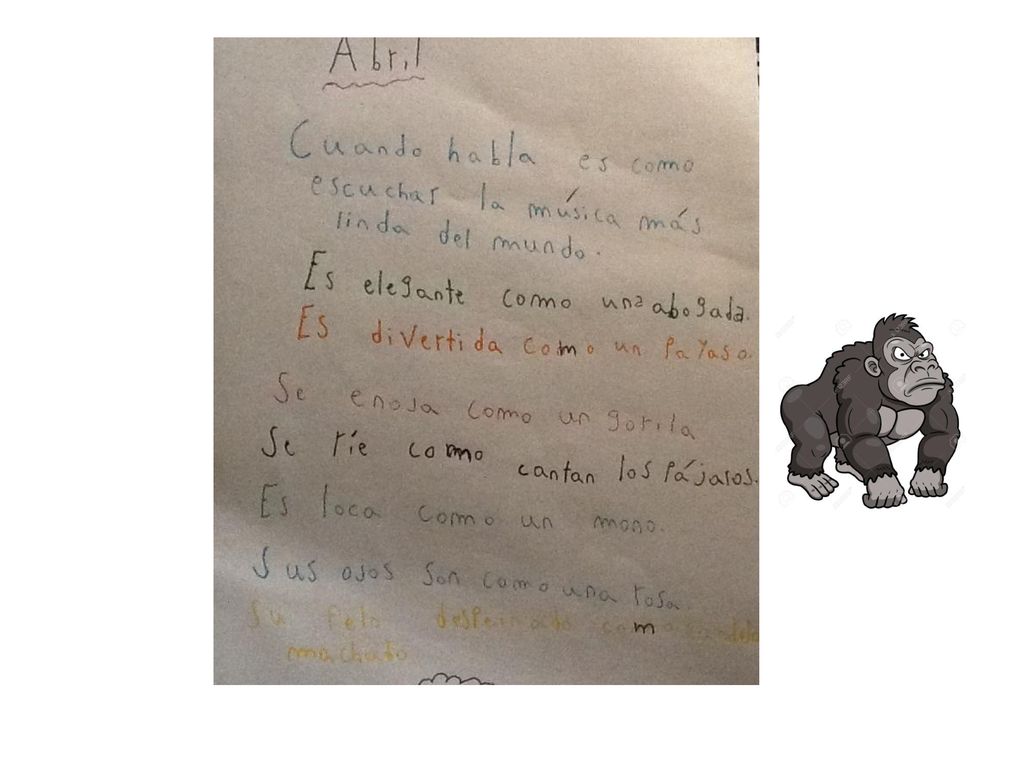 Abril
Cuando habla es como
escuchar la música más
linda del mundo.
Es elegante como una abogada.
Es divertida como un payaso.
Se enoja como un gorila
Se ríe como cantan los pájaros.
Es loca como un mono.
Sus ojos son como una rosa.
Su pelo despeinado com
machado